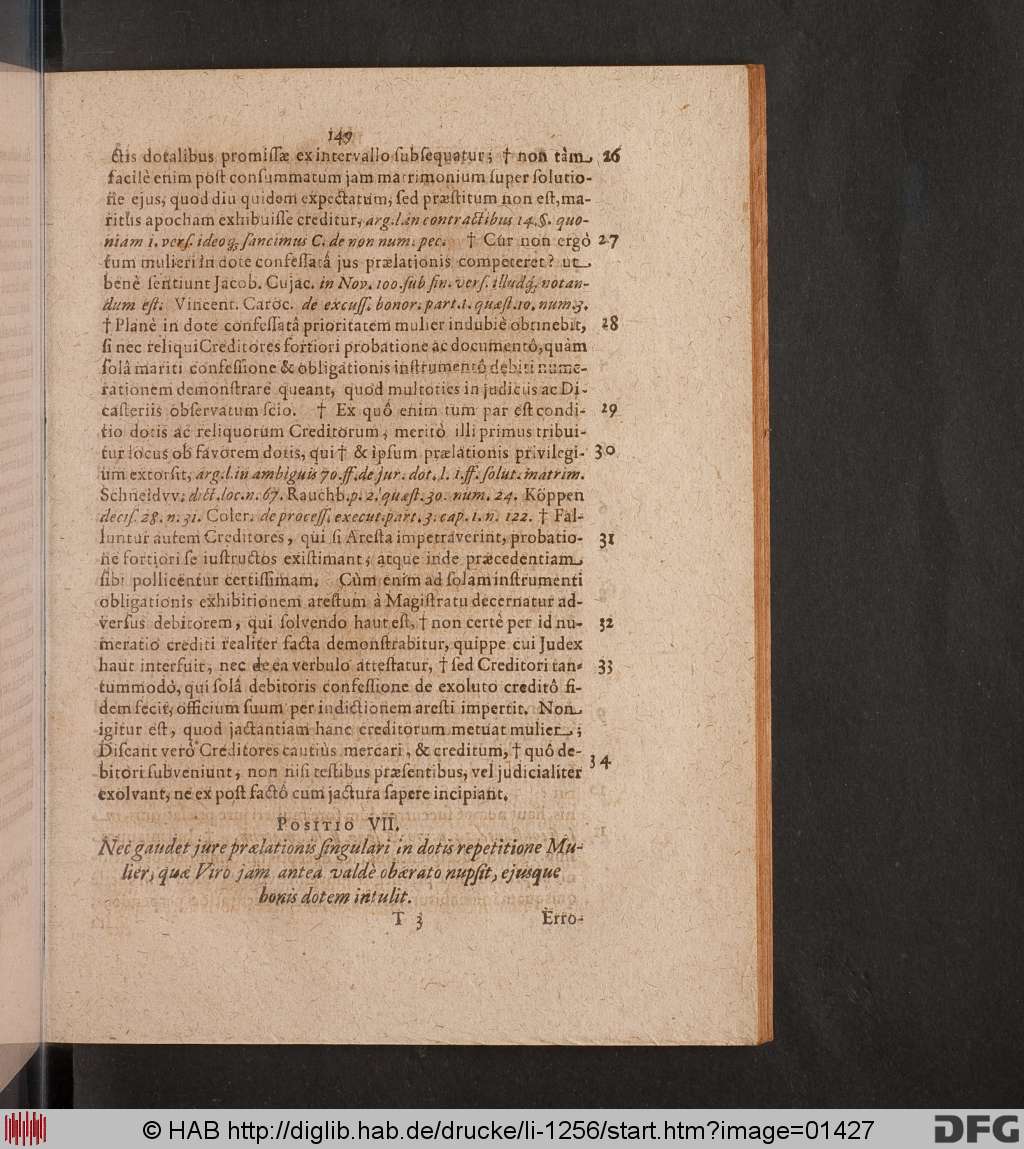 149
ctis dotalibus promissæ ex intervallo subsequatur; † non tàm 26
facilè enim post consummatum jam matrimonium super solutio-
ne ejus, quod diu quidem expectatum, sed præstitum non est, ma-
ritus apocham exhibuisse creditur, arg. l. in contractibus 14. §. quo-
niam 1. vers. ideoq; sancimus C. de non num. pec. † Cur non ergò 27
tum mulieri in dote confessatâ jus prælationis competeret? ut
benè sentiunt Jacob. Cujac. in Nov. 100. sub fin. vers. illudq; notan-
dum est. Vincent. Caroc. de excuss. bonor. part. 1. quæst. 10. num. 3.
† Planè in dote confessatâ prioritatem mulier indubiè obtinebit, 28
si nec reliqui Creditores fortiori probatione ac documentô, quàm
solâ mariti confessione & obligationis instrumentô debiti nume-
rationem demonstrare queant, quod multoties in judiciis ac Di-
casteriis observatum scio. † Ex quô enim tum par est condi- 29
tio dotis ac reliquorum Creditorum, meritò illi primus tribui-
tur locus ob favorem dotis, qui † & ipsum prælationis privilegi- 30
um extorsit, arg. l. in ambiguis 70. ff. de jur. dot. l. 1. ff. solut. matrim.
Schneidvv. dict. loc. n. 67. Rauchb. p. 2. quæst. 30. num. 24. Köppen
decis. 28. n. 31. Coler. de process. execut. part. 3. cap. 1. n. 122. † Fal-
luntur autem Creditores, qui si Aresta impetraverint, probatio- 31
ne fortiori se iustructos existimant, atque inde præcedentiam
sibi pollicentur certissimam. Cùm enim ad solam instrumenti
obligationis exhibitionem arestum à Magistratu decernatur ad-
versus debitorem, qui solvendo haut est, † non certè per id nu- 32
meratio crediti realiter facta demonstrabitur, quippe cui Judex
haut interfuit, nec de ea verbulo attestatur, † sed Creditori tan- 33
tummodò, qui solâ debitoris confessione de exoluto creditô fi-
dem fecit, officium suum per indictionem aresti impertit. Non
igitur est, quod jactantiam hanc creditorum metuat mulier;
Discant verò Creditores cautiùs mercari, & creditum, † quô de- 34
bitori subveniunt, non nisi testibus præsentibus, vel judicialiter
exolvant, ne ex post factô cum jactura sapere incipiant.
POSITIO VII.
Nec gaudet jure prælationis singulari in dotis repetitione Mu-
lier, quæ Viro jam antea valdè obærato nupsit, ejusque
bonis dotem intulit.
T 3 Erro-
© HAB http://diglib.hab.de/drucke/li-1256/start.htm?image=01427
DFG